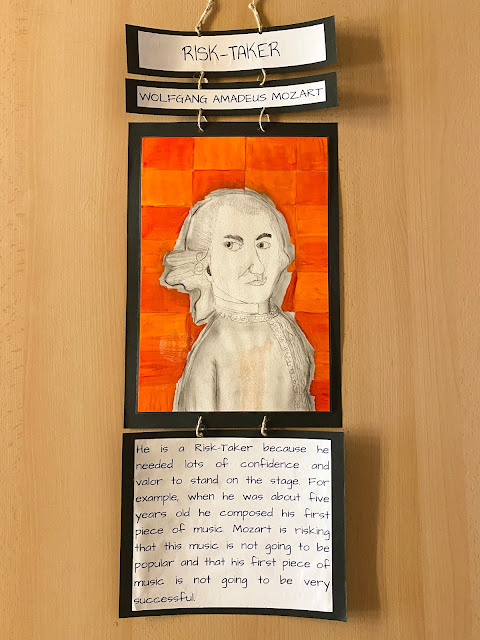 RISK-TAKER
WOLFGANG AMADEUS MOZART
He is a Risk-Taker because he
needed lots of confidence and
valor to stand on the stage. For
example, when he was about five
years old he composed his first
piece of music. Mozart is risking
that this music is not going to be
popular and that his first piece of
music is not going to be very
successful.